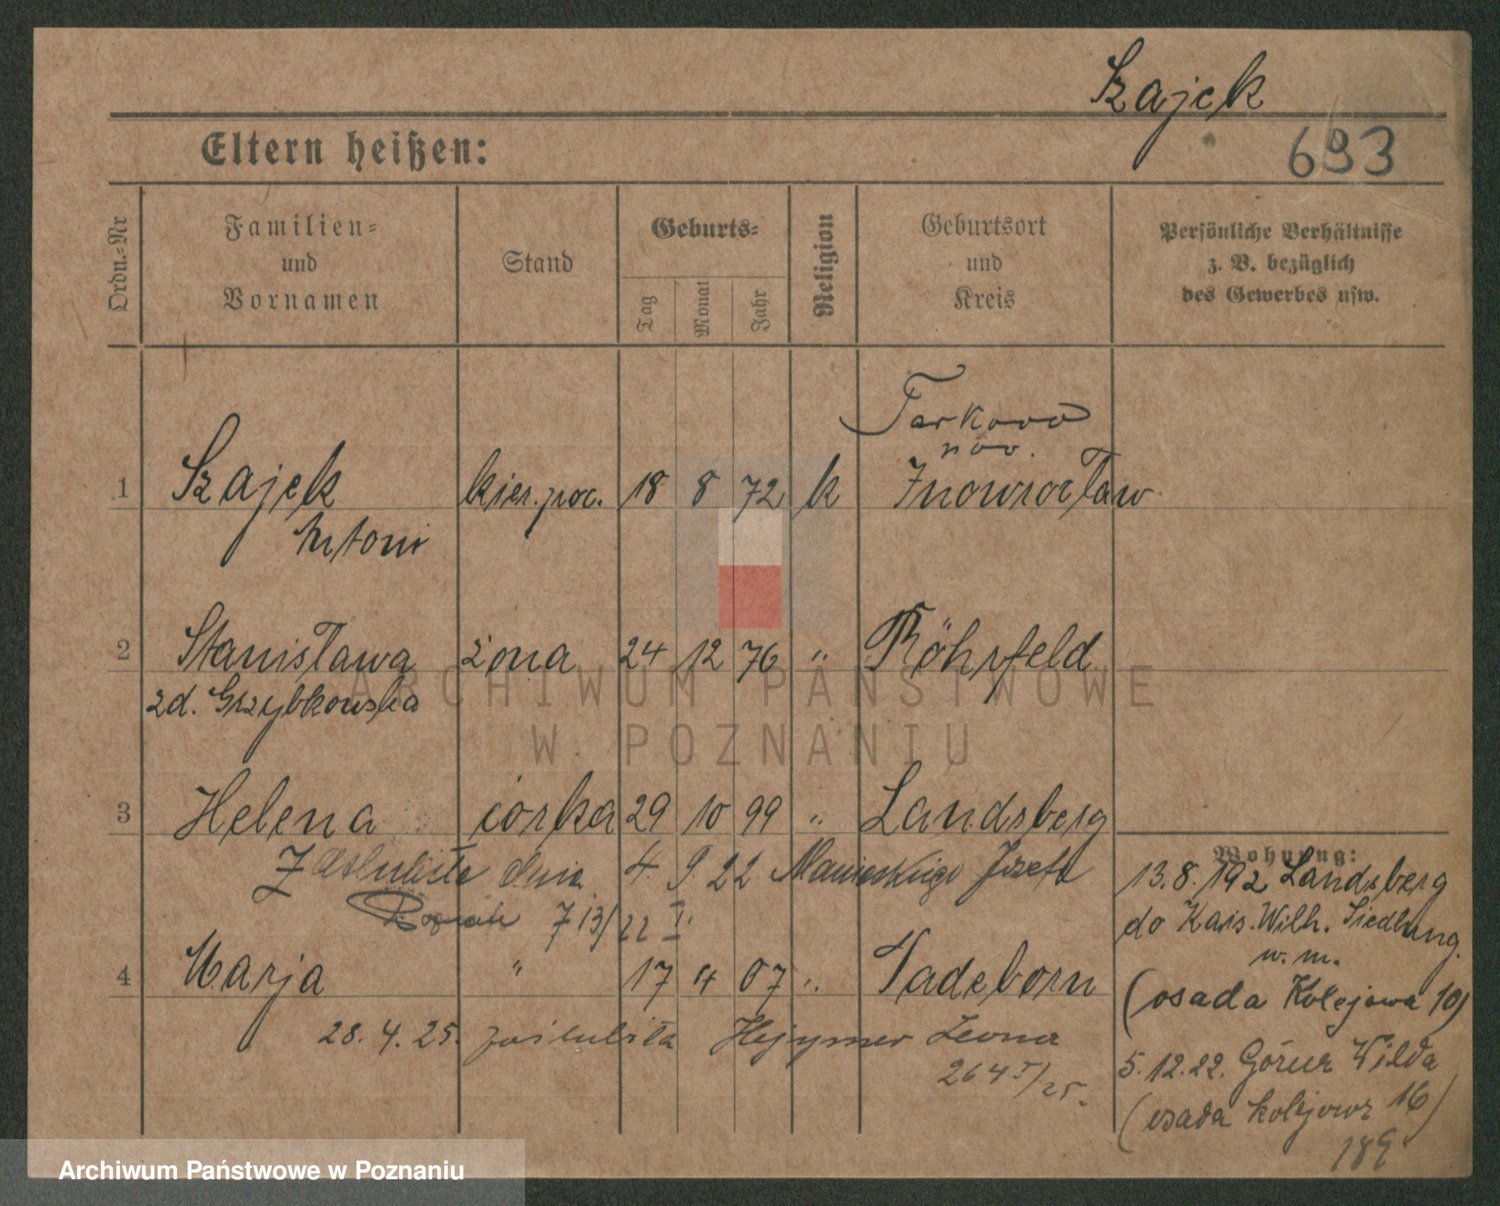 Szajek
Eltern heißen:
693
Ordn.-Nr
Familien-
und
Vornamen
Stand
Geburts-
Tag
Monat
Jahr
Religion
Geburtsort
und
Kreis
Persönliche Verhältnisse
z. B. bezüglich
des Gewerbes usw.
Tarkowo
pow.
1 Szajek kier. poc. 18 8 72 k Inowrocław
Antoni
2 Stanisława żona 24 12 76 " Röhrfeld
zd. Grzybkowska
ARCHIWUM PAŃSTWOWE
W POZNANIU
3 Helena córka 29 10 99 " Landsberg
Zaślubiła dnia 4. 9 22 Józefa
Poznań 713/22 I.
4 Marja " 17 4 07 " Padeborn
28.4.25. zaślubiła Leona
264 I/25.
Wohnung:
13.8.192 Landsberg
do Kais. Wilh. Siedlung.
w. m.
(osada Kolejowa 10)
5.12.22. Górna Wilda
(osada kolejowa 16)
189
Archiwum Państwowe w Poznaniu